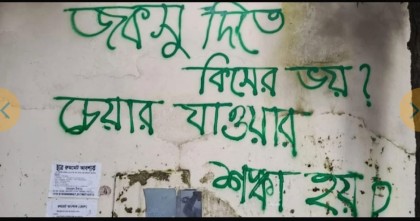 জকসু দিতে
কিসের ভয়?
চেয়ার যাওয়ার
শঙ্কা হয়?